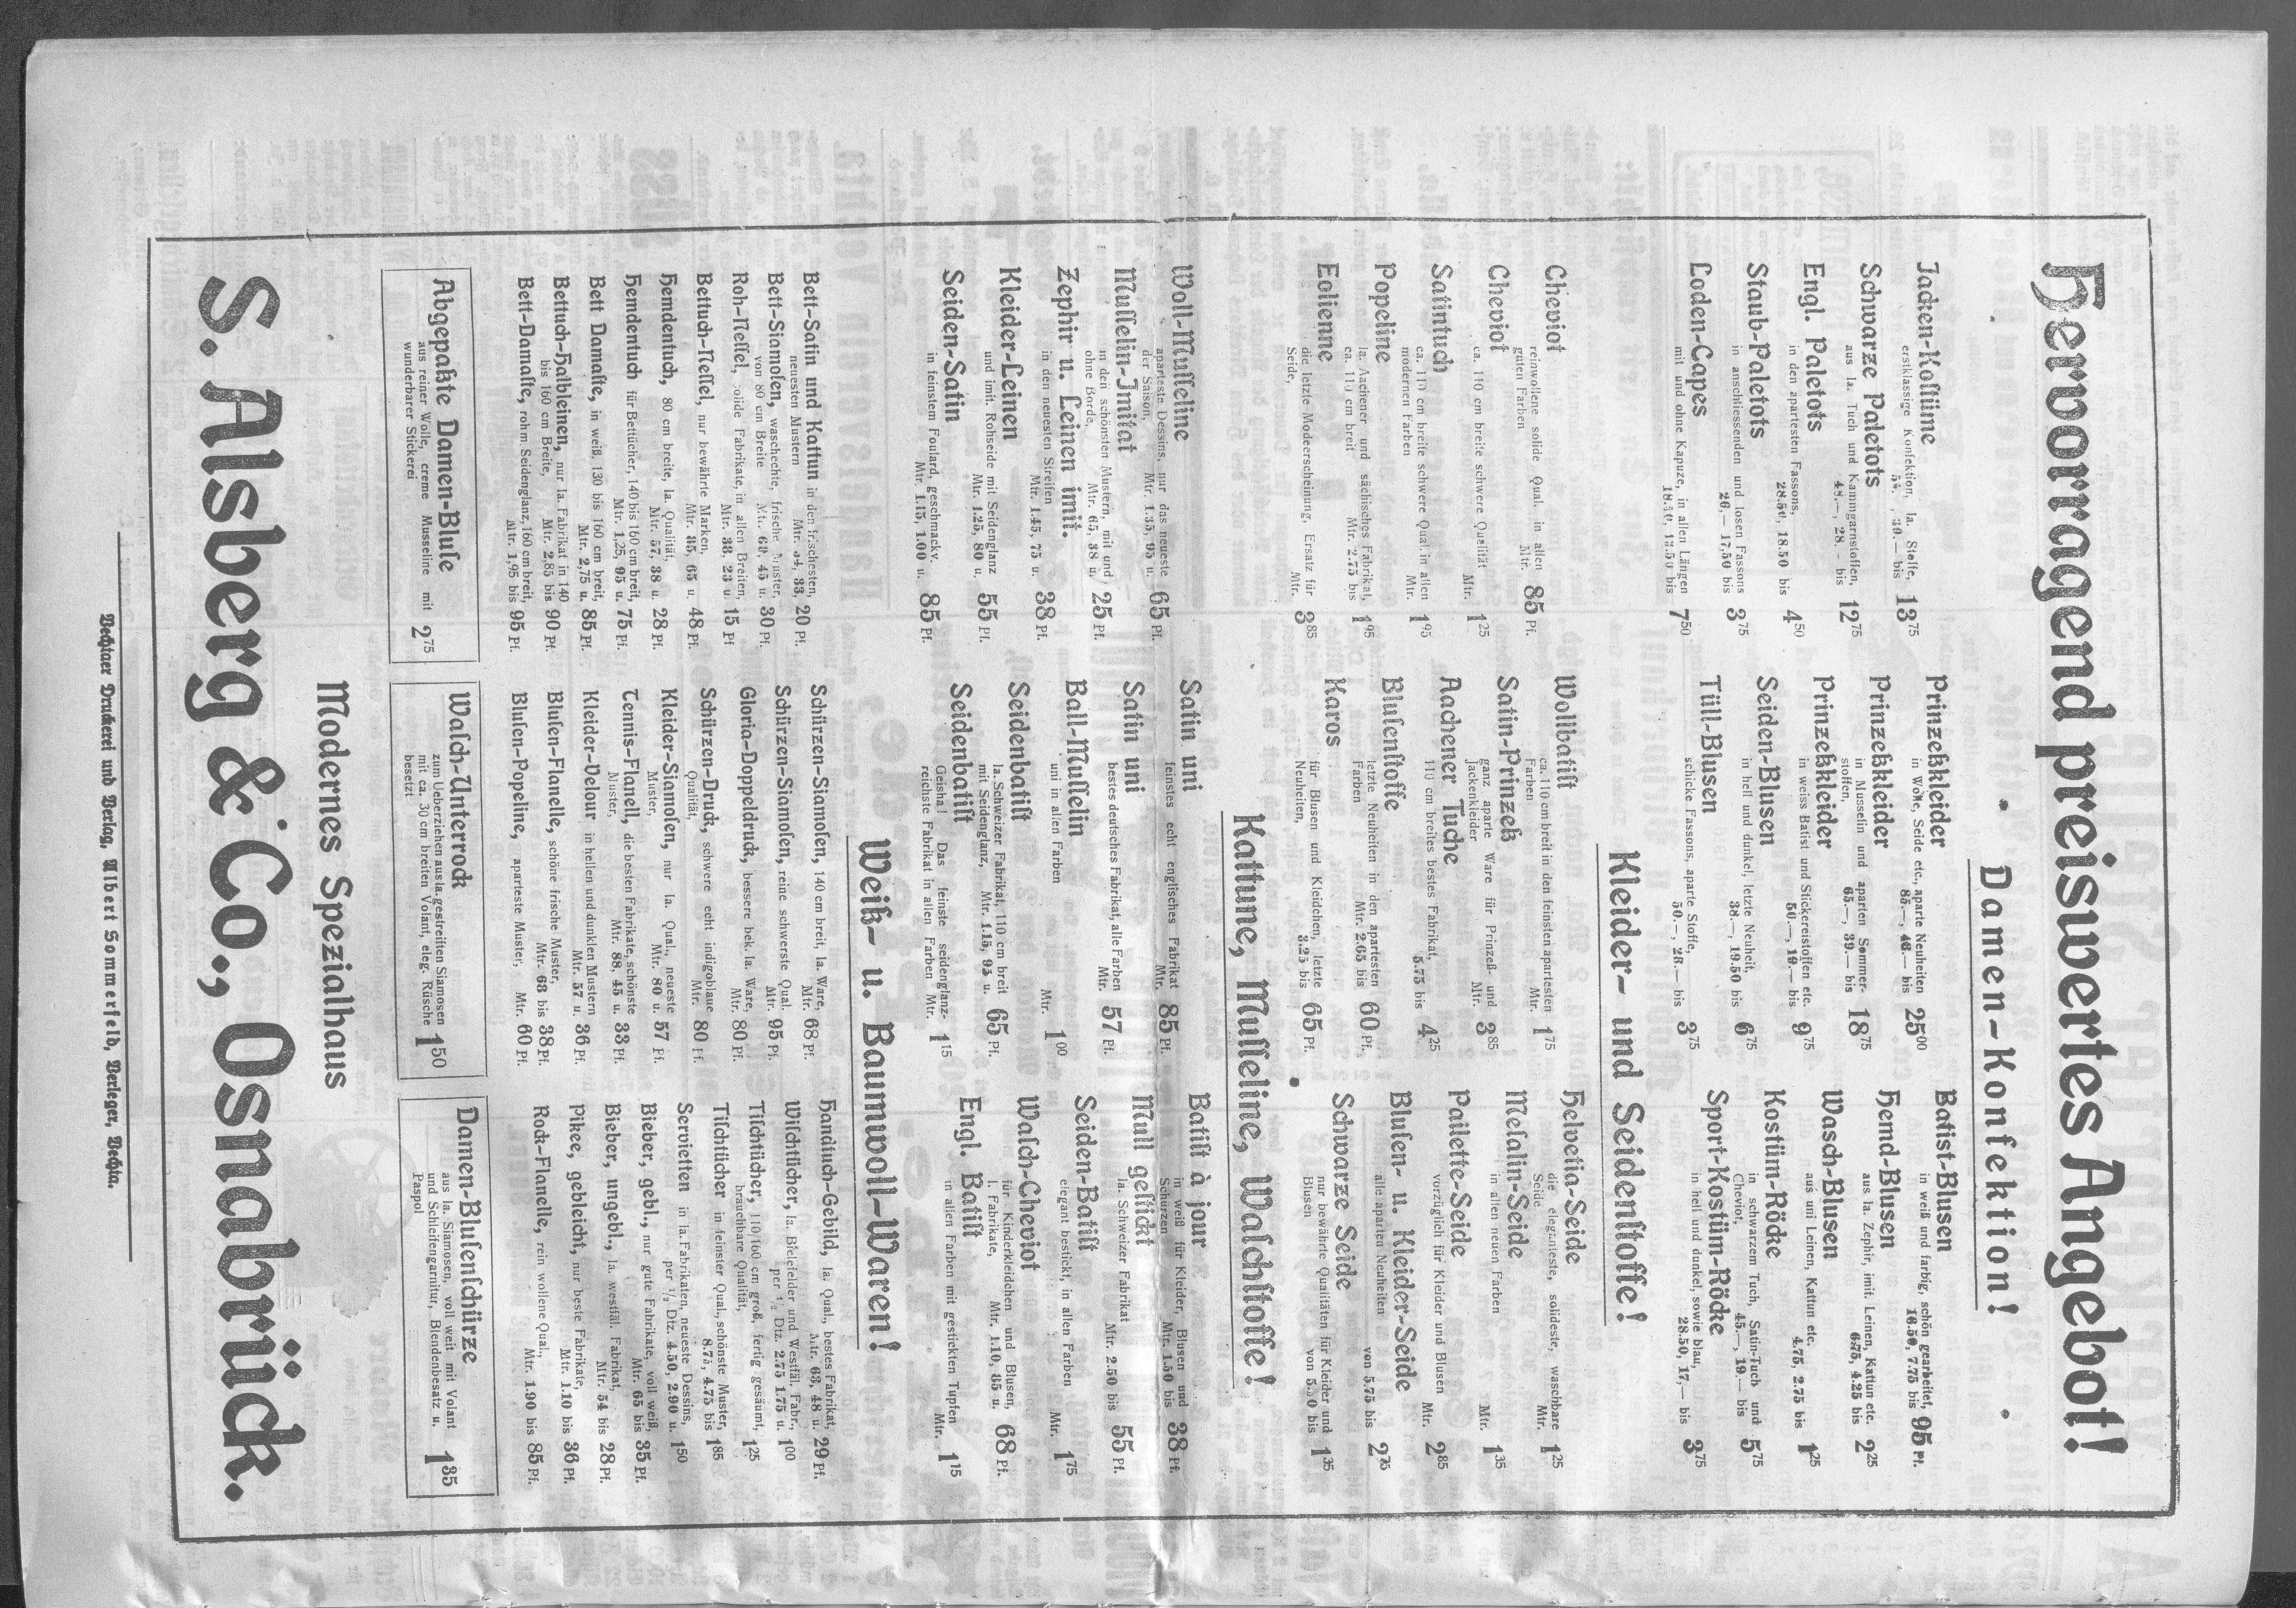 Hervorragend preiswertes Angebot!
Damen-Konfektion!
Jacken-Kostüme
erstklassige Konfektion, Ia. Stoffe,
54.—, 39.— bis 13 75
Schwarze Paletots
aus Ia. Tuch und Kammgarnstoffen,
48.—, 28.— bis 12 75
Engl. Paletots
in den apartesten Fassons,
28.50, 18.50 bis 4 50
Staub-Paletots
in anschliessenden und losen Fassons
26.— 17,50 bis 3 75
Loden-Capes
mit und ohne Kapuze, in allen Längen
18.50, 13.50 bis 7 50
Prinzeßkleider
in Wolle, Seide etc., aparte Neuheiten
85.—, 46.— bis 25 00
Prinzeßkleider
in Musselin und aparten Sommer-
stoffen,
65.—, 39.— bis 18 75
Prinzeßkleider
in weiss Batist und Stickereistoffen etc.
50.—, 19.— bis 9 75
Seiden-Blusen
in hell und dunkel, letzte Neuheit,
38.—, 19.50 bis 6 75
Tüll-Blusen
schicke Fassons, aparte Stoffe,
50.—, 28.— bis 3 75
Batist-Blusen
in weiß und farbig, schön gearbeitet,
16.50, 7.75 bis 95 Pf.
Hemd-Blusen
aus Ia. Zephir, imit. Leinen, Kattun etc.
6.75, 4.25 bis 2 25
Wasch-Blusen
aus uni Leinen, Kattun etc.
4.75, 2.75 bis 1 25
Kostüm-Röcke
in schwarzem Tuch, Satin-Tuch und
Cheviot,
45.—, 19.— bis 5 75
Sport-Kostüm-Röcke
in hell und dunkel, sowie blau,
28.50, 17,— bis 3 75
Kleider- und Seidenstoffe!
Cheviot
reinwollene solide Qual. in allen
guten Farben
Mtr. 85 Pf.
Cheviot
ca. 110 cm breite schwere Qualität
Mtr. 1 25
Satintuch
ca. 110 cm breite schwere Qual. in allen
modernen Farben
Mtr. 1 95
Popeline
Ia. Aachener und sächsisches Fabrikat,
ca. 110 cm breit
Mtr. 2.75 bis 1 95
Eolienne
die letzte Modeerscheinung, Ersatz für
Seide,
Mtr. 3 85
Wollbatist
ca. 110 cm breit in den feinsten apartesten
Farben
Mtr. 1 75
Satin-Prinzeß
ganz aparte Ware für Prinzeß- und
Jackenkleider
Mtr. 3 85
Aachener Tuche
110 cm breites bestes Fabrikat,
5.75 bis 4 25
Blusenstoffe
letzte Neuheiten in den apartesten
Farben
Mtr. 2.65 bis 60 Pf.
Karos
für Blusen und Kleidchen, letzte
Neuheiten,
3.25 bis 65 Pf.
Helvetia-Seide
die eleganteste, solideste, waschbare
Seide
Mtr. 1 25
Mesalin-Seide
in allen neuen Farben
Mtr. 1 35
Pailette-Seide
vorzüglich für Kleider und Blusen
Mtr. 2 85
Blusen- u. Kleider-Seide
alle aparten Neuheiten
von 5.75 bis 2 75
Schwarze Seide
nur bewährte Qualitäten für Kleider und
Blusen
von 5.50 bis 1 35
Kattune, Musseline, Waschstoffe!
Woll-Musseline
aparteste Dessins, nur das neueste
der Saison,
Mtr. 1.35, 95 u. 65 Pf.
Musselin-Imitat
in den schönsten Mustern, mit und
ohne Borde,
Mtr. 65, 38 u. 25 Pf.
Zephir u. Leinen imit.
in den neuesten Streifen
Mtr. 1.45, 75 u. 38 Pf.
Kleider-Leinen
und imit. Rohseide mit Seidenglanz
Mtr. 1.25, 80 u. 55 Pf.
Seiden-Satin
in feinstem Foulard, geschmackv.
Mtr. 1.15, 1.00 u. 85 Pf.
Satin uni
feinstes echt englisches Fabrikat
Mtr. 85 Pf.
Satin uni
bestes deutsches Fabrikat, alle Farben
Mtr. 57 Pf.
Ball-Musselin
uni in allen Farben
Mtr. 1 00
Seidenbatist
Ia. Schweizer Fabrikat, 110 cm breit
mit Seidenglanz,
Mtr. 1.15, 95 u. 65 Pf.
Seidenbatist
Geisha! Das feinste seidenglanz-
reichste Fabrikat in allen Farben
Mtr. 1 15
Batist à jour
in weiß für Kleider, Blusen und
Schürzen
Mtr. 1.50 bis 38 Pf.
Mull gestickt
Ia. Schweizer Fabrikat
Mtr. 2.50 bis 55 Pf.
Seiden-Batist
elegant bestickt, in allen Farben
Mtr. 1 75
Wasch-Cheviot
für Kinderkleidchen und Blusen,
I. Fabrikate,
Mtr. 1.10, 85 u. 68 Pf.
Engl. Batist
in allen Farben mit gestickten Tupfen
Mtr. 1 15
Weiß- u. Baumwoll-Waren!
Bett-Satin und Kattun in den frischesten,
neuesten Mustern Mtr. 54, 33, 20 Pf.
Bett-Siamosen, waschechte, frische Muster,
von 80 cm Breite Mtr. 60, 45 u. 30 Pf.
Roh-Nessel, solide Fabrikate, in allen Breiten,
Mtr. 38, 23 u. 15 Pf
Bettuch-Nessel, nur bewährte Marken,
Mtr. 85, 65 u. 48 Pf.
Hemdentuch, 80 cm breite, Ia. Qualität,
Mtr. 57, 38 u. 28 Pf.
Hemdentuch für Bettücher, 140 bis 160 cm breit,
Mtr. 1,25, 95 u. 75 Pf.
Bett Damaste, in weiß, 130 bis 160 cm breit,
Mtr. 2,75 u. 85 Pf.
Bettuch-Halbleinen, nur Ia. Fabrikat in 140
bis 160 cm Breite, Mtr. 2,85 bis 90 Pf.
Bett-Damaste, rohm Seidenglanz, 160 cm breit,
Mtr. 1,95 bis 95 Pf.
Schürzen-Siamosen, 140 cm breit, Ia. Ware,
Mtr. 68 Pf.
Schürzen-Siamosen, reine schwerste Qual.
Mtr. 95 Pf.
Gloria-Doppeldruck, bessere bek. Ia. Ware,
Mtr. 80 Pf.
Schürzen-Druck, schwere echt indigoblaue
Qualität, Mtr. 80 Pf.
Kleider-Siamosen, nur Ia. Qual., neueste
Muster, Mtr. 80 u. 57 Pf.
Tennis-Flanell, die besten Fabrikate, schönste
Muster, Mtr. 88, 45 u. 33 Pf.
Kleider-Velour in hellen und dunklen Mustern
Mtr. 57 u. 36 Pf.
Blusen-Flanelle, schöne frische Muster,
Mtr. 68 bis 38 Pf.
Blusen-Popeline, aparteste Muster,
Mtr. 60 Pf.
Handtuch-Gebild, Ia. Qual., bestes Fabrikat,
Mtr. 63, 48 u. 29 Pf.
Wischtücher, Ia. Bielefelder und Westfäl. Fabr.,
per ½ Dtz. 2.75 1.75 u. 1 00
Tischtücher, 110/160 cm groß, fertig gesäumt,
brauchbare Qualität, 1 25
Tischtücher in feinster Qual., schönste Muster,
8.75, 4.75 bis 1 85
Servietten in Ia. Fabrikaten, neueste Dessins,
per ½ Dtz. 4.50, 2.90 u. 1 50
Bieber, gebl., nur gute Fabrikate, voll weiß,
Mtr. 65 bis 35 Pf.
Bieber, ungebl., Ia. westfäl. Fabrikat,
Mtr. 54 bis 28 Pf.
Pikee, gebleicht, nur beste Fabrikate,
Mtr. 1.10 bis 36 Pf.
Rock-Flanelle, rein wollene Qual.,
Mtr. 1.90 bis 85 Pf.
Abgepaßte Damen-Bluse
aus reiner Wolle, creme Musseline mit
wunderbarer Stickerei 2 75
Wasch-Unterrock
zum Ueberziehen aus Ia. gestreiften Siamosen
mit ca. 30 cm breiten Volant, eleg. Rüsche
besetzt 1 50
Damen-Blusenschürze
aus Ia. Siamosen, voll weit mit Volant
und Schleifengarnitur, Blendenbesatz u.
Paspol 1 85
Modernes Spezialhaus
S. Alsberg & Co., Osnabrück.
Vechtaer Druckerei und Verlag, Albert Sommerfeld, Verleger, Vechta.